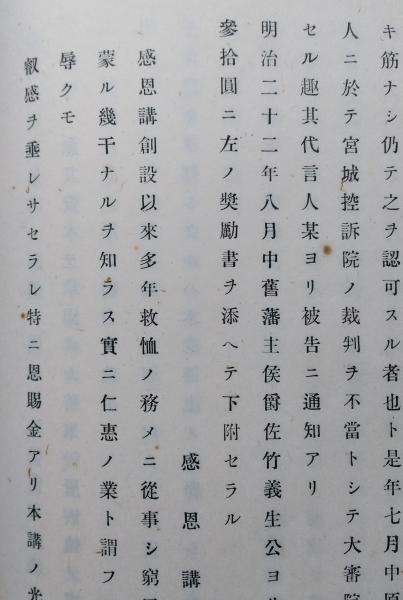 キ筋ナシ仍テ之ヲ認可スル者也ト是年七月中原
人ニ於テ宮城控訴院ノ裁判ヲ不當トシテ大審院
セル趣其代言人某ヨリ被告ニ通知アリ
明治二十二年八月中舊藩主侯爵佐竹義生公ヨリ
參拾圓ニ左ノ奬勵書ヲ添ヘテ下附セラル
感恩講
感恩講創設以來多年救恤ノ務メニ從事シ窮
蒙ル幾千ナルヲ知ラス實ニ仁惠ノ業ト謂フ
辱クモ
叡感ヲ垂レサセラレ特ニ恩賜金アリ本講ノ光